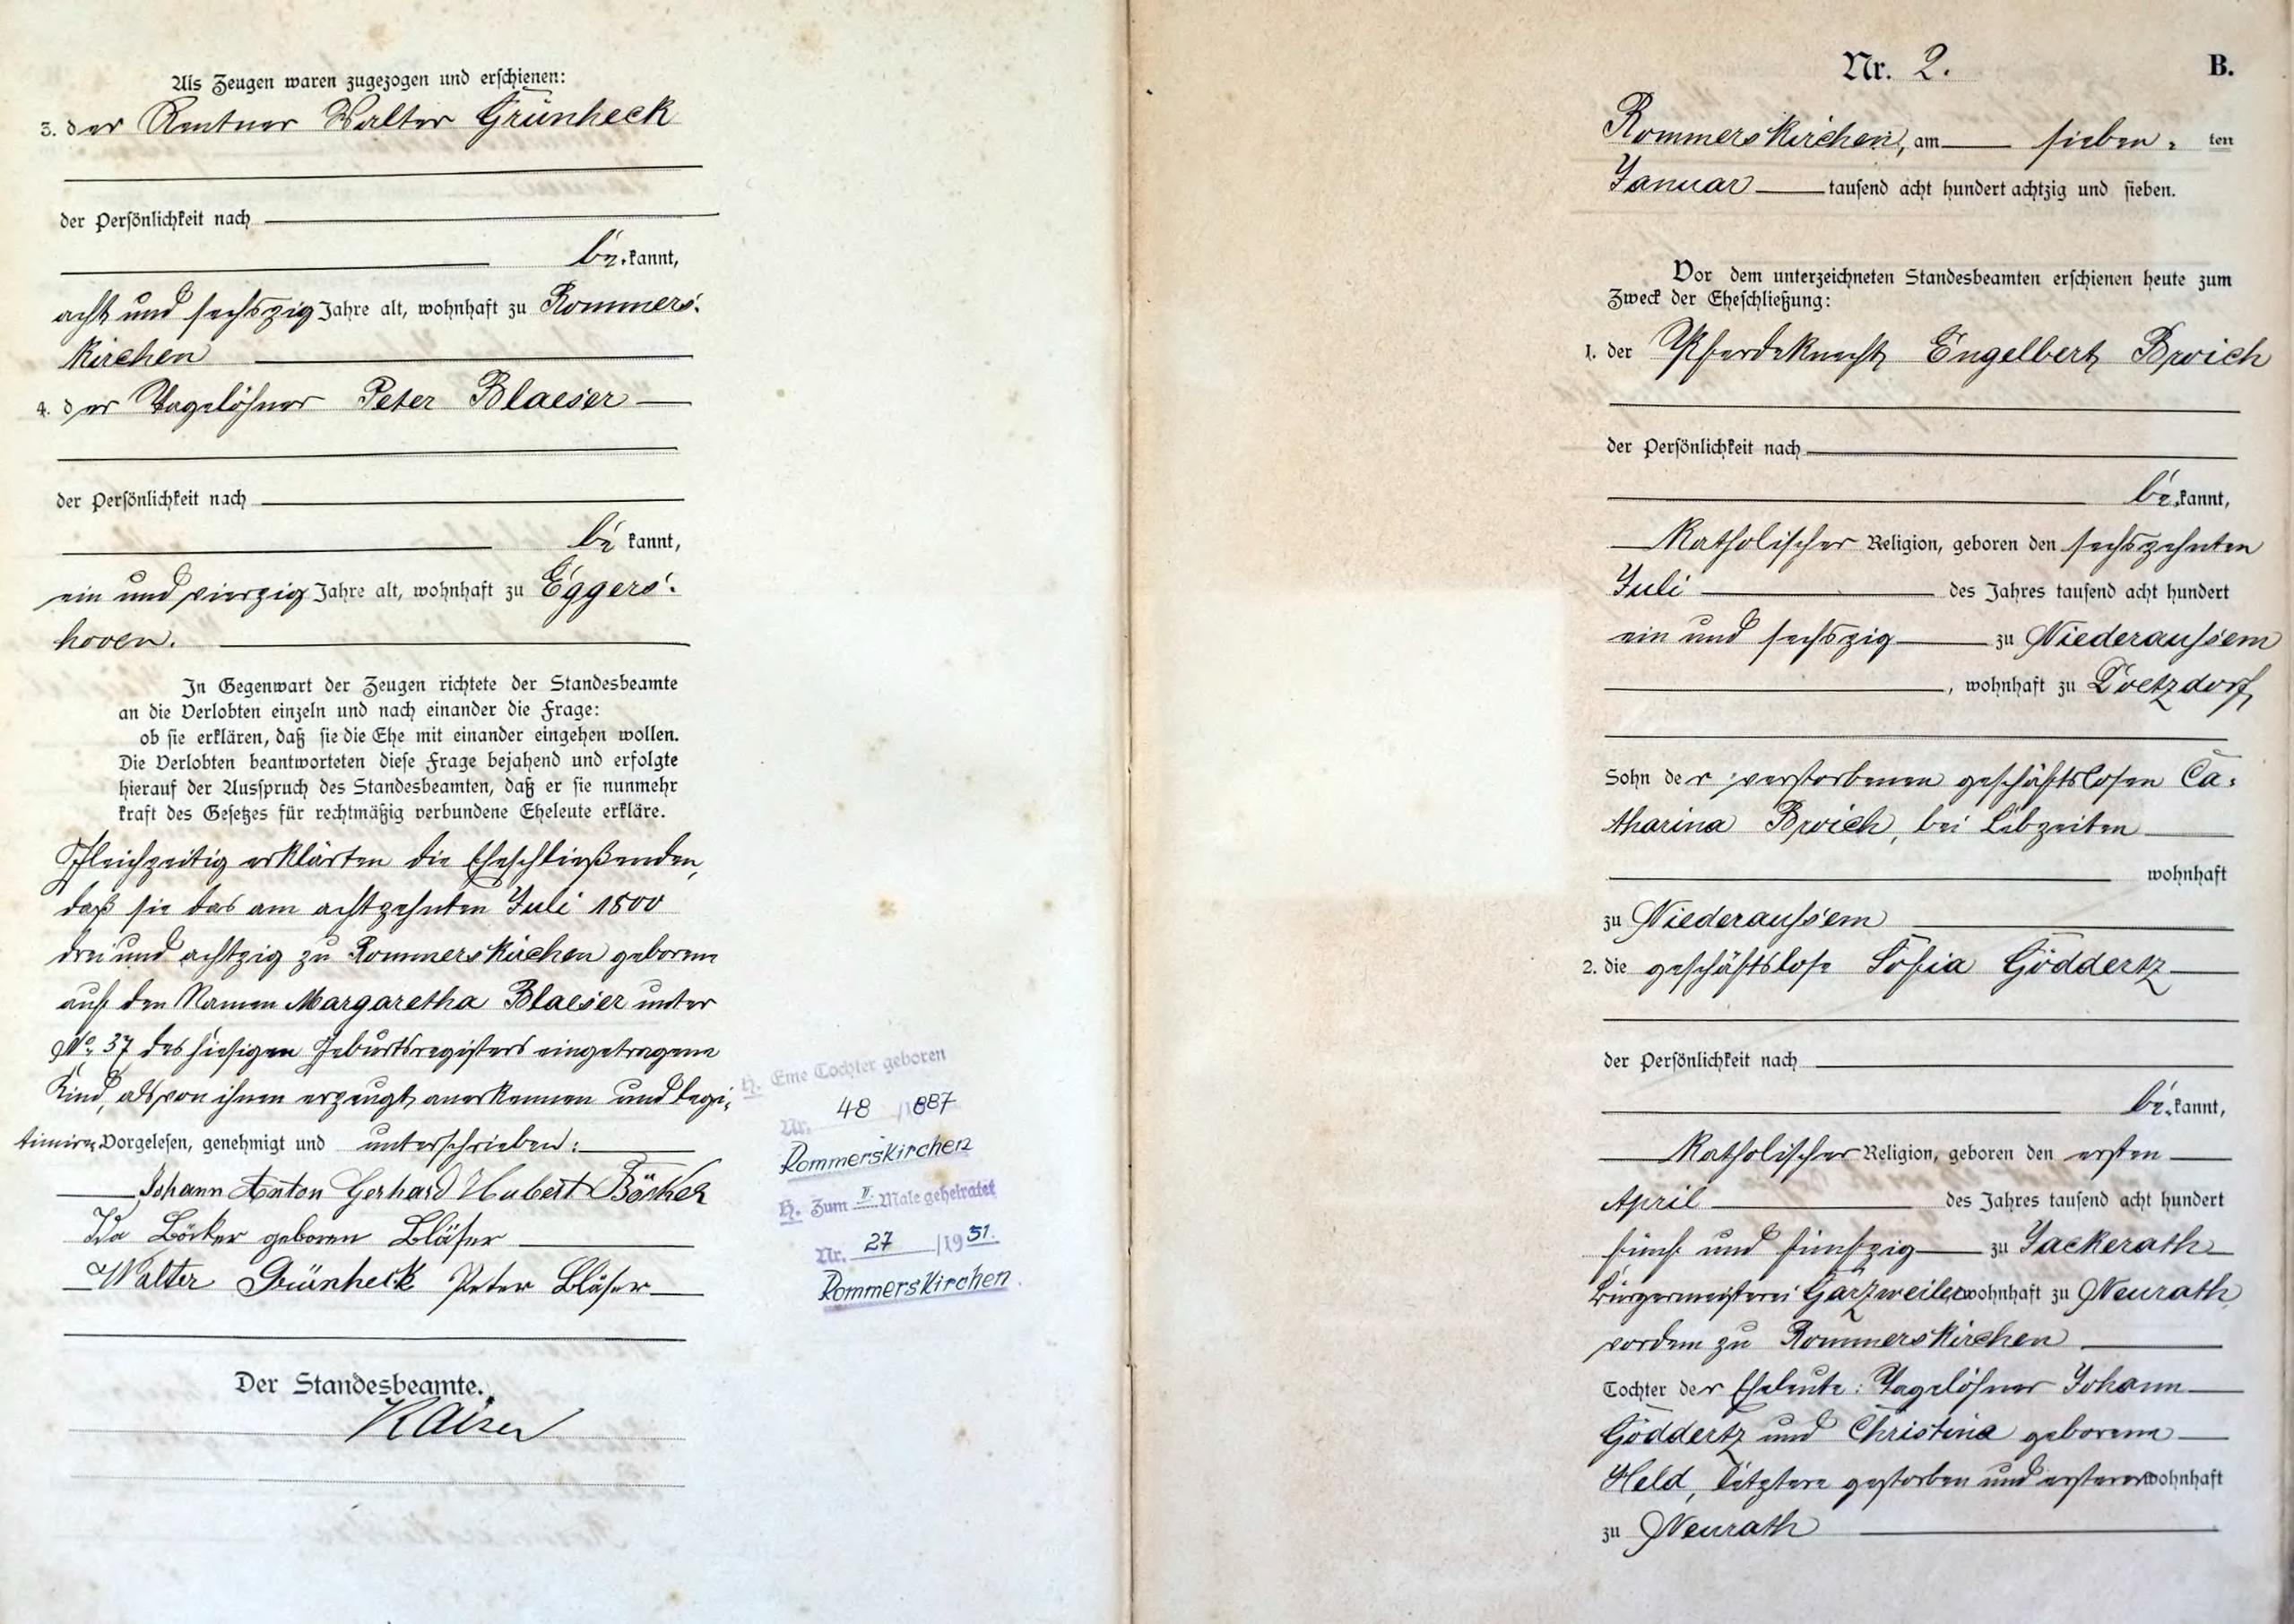 Als Zeugen waren zugezogen und erschienen:
3. der Rentner Walter Grünheck
der Persönlichkeit nach
be kannt,
acht und sechszig Jahre alt, wohnhaft zu Rommers-
kirchen
4. der Tagelöhner Peter Blaeser
der Persönlichkeit nach
be kannt,
ein und vierzig Jahre alt, wohnhaft zu Eggers-
hoven.
In Gegenwart der Zeugen richtete der Standesbeamte
an die Verlobten einzeln und nach einander die Frage:
ob sie erklären, daß sie die Ehe mit einander eingehen wollen.
Die Verlobten beantworteten diese Frage bejahend und erfolgte
hierauf der Ausspruch des Standesbeamten, daß er sie nunmehr
kraft des Gesetzes für rechtmäßig verbundene Eheleute erkläre.
Gleichzeitig erklärten die Eheschließenden,
daß sie das am achtzehnten Juli 1800
drei und achtzig zu Rommerskirchen geborene
auf den Namen Margaretha Blaeser unter
No. 37 des hiesigen Geburtsregisters eingetragene
Kind, als von ihnen erzeugt anerkennen und legi-
timiren Vorgelesen, genehmigt und unterschrieben:
Johann Anton Gerhard Hubert Böcker
Ida Böcker geboren Bläser
Walter Grünheck Peter Bläser
Der Standesbeamte.
Kaiser
H. Eine Tochter geboren
Nr. 48 /1887
Rommerskirchen
H. Zum II. Male geheiratet
Nr. 27 /1931.
Rommerskirchen.
Nr. 2. B.
Rommerskirchen, am sieben- ten
Januar tausend acht hundert achtzig und sieben.
Vor dem unterzeichneten Standesbeamten erschienen heute zum
Zweck der Eheschließung:
1. der Pferdeknecht Engelbert Broich
der Persönlichkeit nach
be kannt,
Katholischer Religion, geboren den sechszehnten
Juli des Jahres tausend acht hundert
ein und sechszig zu Niederaußem
, wohnhaft zu Doetzdorf,
Sohn der verstorbenen geschäftslosen Ca-
tharina Broich, bei Lebzeiten
wohnhaft
zu Niederaußem
2. die geschäftslose Sofia Göddertz
der Persönlichkeit nach
be kannt,
Katholischer Religion, geboren den ersten
April des Jahres tausend acht hundert
fünf und fünfzig zu Jackerath
Bürgermeisterei Garzweiler wohnhaft zu Neurath,
vordem zu Rommerskirchen
Tochter der Eheleute: Tagelöhner Johann
Göddertz und Christina geborene
Held, letztere gestorben und ersterer wohnhaft
zu Neurath